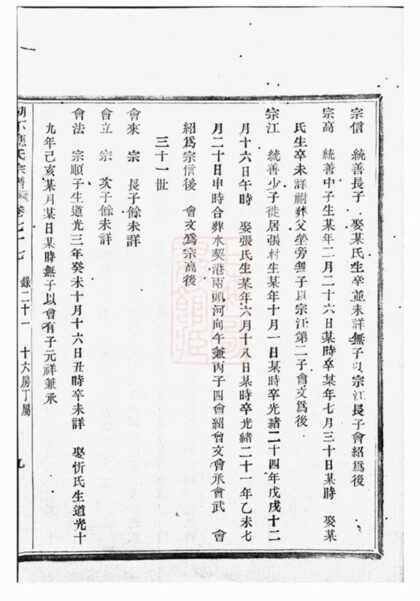 宗信　統善長子　娶某氏生卒並未詳無子以宗江長子會紹爲後
宗高　統善中子生某年二月二十六日某時卒某年七月三十日某時　娶某
氏生卒未詳祔葬父塋旁無子以宗江第二子會文爲後
宗江　統善少子徙居張村生某年十月一日某時卒光緒二十四年戊戌十二
月十六日午時　娶張氏生某年六月十八日某時卒光緒二十一年乙未七
月二十日申時合葬水契港兩頭河向午兼丙子四會紹會文會承會武　會
紹爲宗信後　會文爲宗高後
三十一世
會來　宗長子餘未詳
會立　宗次子餘未詳
會法　宗順子生道光三年癸未十月十六日丑時卒未詳　娶忻氏生道光十
九年己亥某月某日某時無子以會有子元祥兼承
氏宗譜　卷七十七　錄二十一　十六房丁屬　九